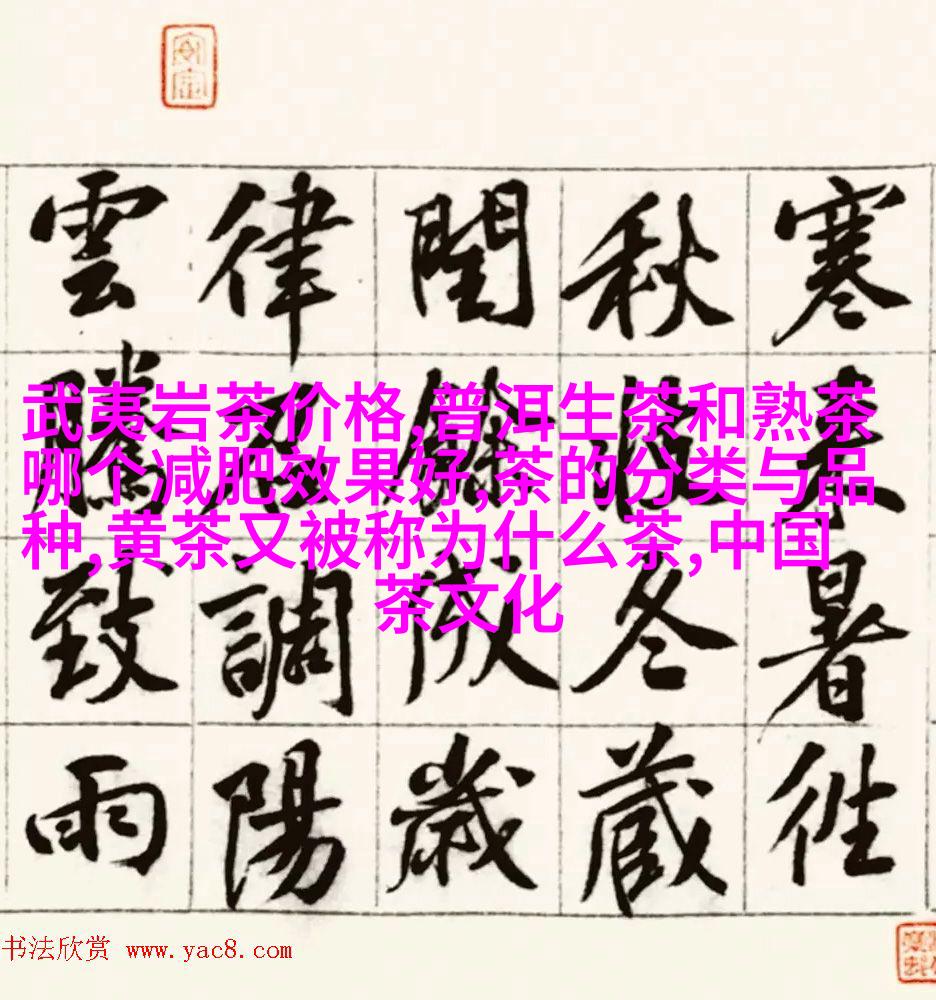 寒来暑往
秋收冬藏
閏餘成歲
律呂調陽
雲騰致雨
武夷岩茶价格,普洱生茶和熟茶
哪个减肥效果好,茶的分类与品
种,黄茶又被称为什么茶,中国
茶文化
书法欣赏 www.yac8.com